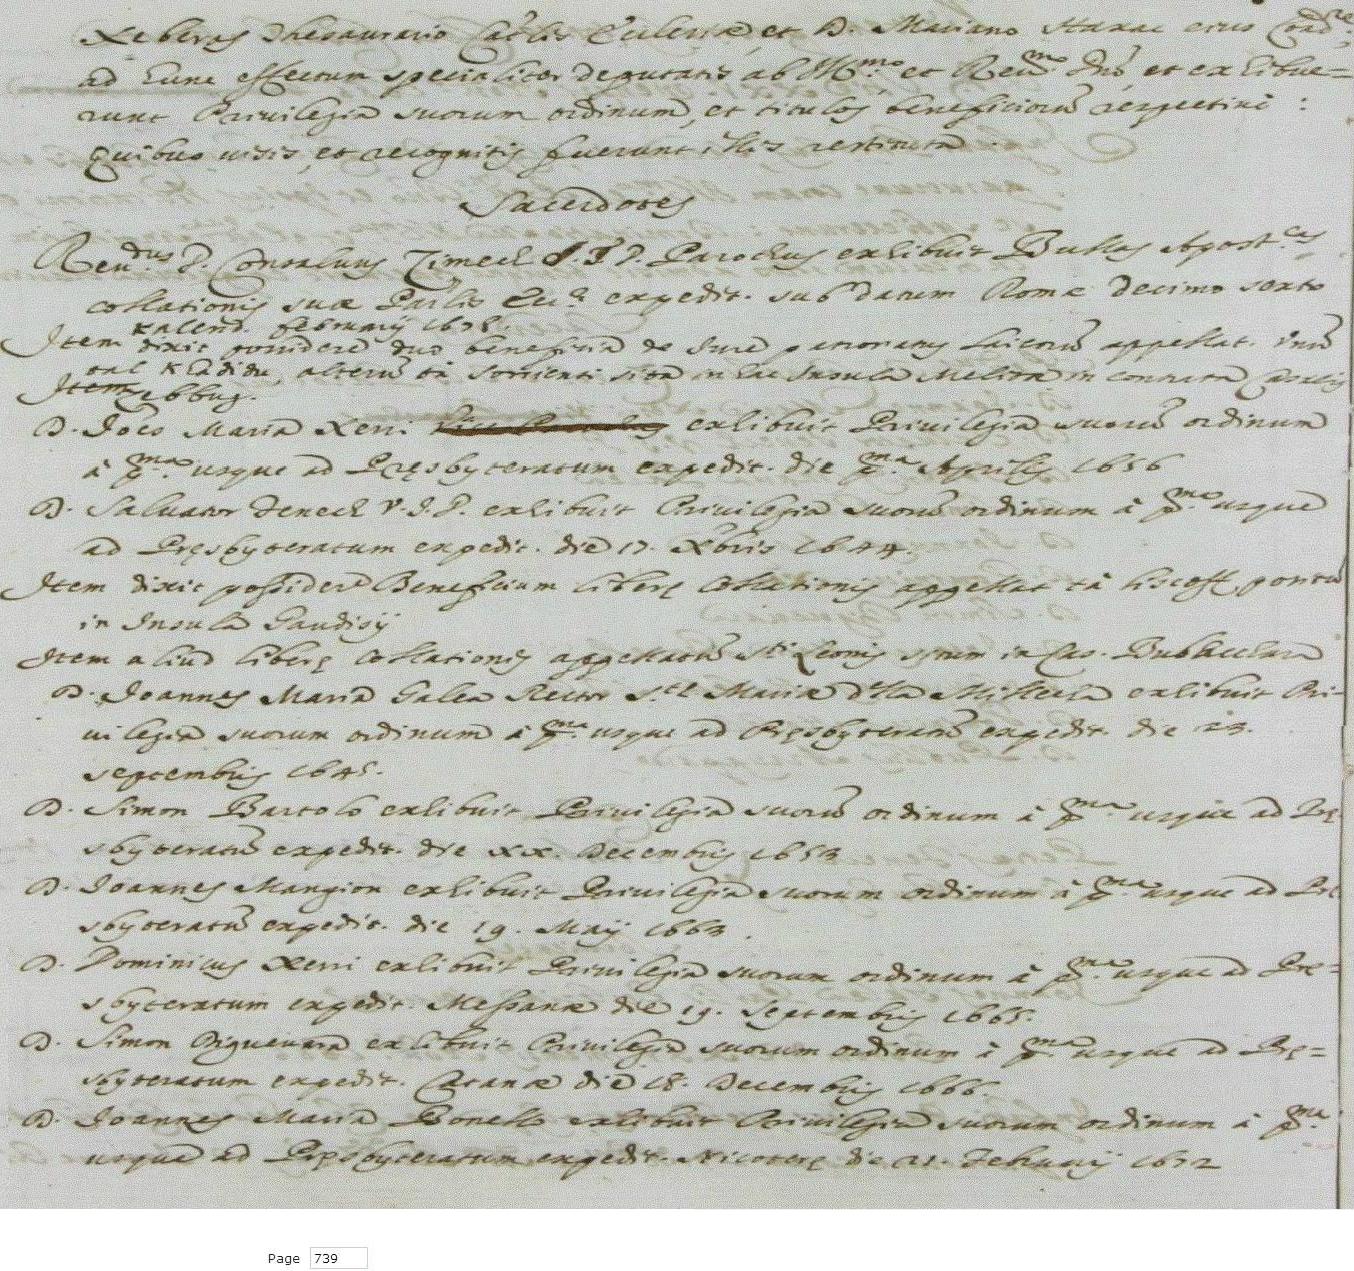 Xeberas Thesaurario Cat'lis Eccl'esiæ, et D. Mariano Haxac eius
ad hunc effectum specialiter deputatis ab Ill.mo et Reu.mo Dño, et exhibue=
runt Priuilegia suorum ordinum, et titulos beneficiorũ respectiuè :
Quibus uisis, et recognitis fuerunt illis restituta
Sacerdotes
Reu.dus D. Consaluus Zimech S.T.D. Parochus exhibuit Bullas Apost.cas
collationis suæ expedit. sub datum Romæ decimo sexto
Kalend. februarij
Item dixit possidere duo beneficia de Iure patronatus laicorũ appellat. Vnũ
tal Khadidu, alterũ ta sorrienti sita in hac Insula Melitæ in contrata Casalis
Item Zebbug.
D. Joes Maria Xerri exhibuit Priuilegia suorũ ordinum
à p.ma usque ad Pręsbyteratum expedit. die p.ma Aprilis 1656
D. Saluator Fenech V.I.D. exhibuit Priuilegia suorũ ordinum à p.ma usque
ad Pręsbyteratum expedit. die 17. Xbris 1644.
Item dixit possidere Beneficium liberę collationis appellat ta
in Insula Gaudisij
Item aliud liberę collationis appellatũ S.ti Leonis situm in Cas. Bubbacchara
D. Joannes Maria Galea Rector S.tæ Mariæ exhibuit Pri-
uilegia suorum ordinum à p.ma usque ad Pręsbyteratũ expedit. die 23.
septembris 1645.
D. Simon Bartolo exhibuit Priuilegia suorũ ordinum à p.ma usque ad Prę
sbyteratũ expedit. die xx. Decembris 1653
D. Joannes Mangion exhibuit Priuilegia suorum ordinum à p.ma usque ad Pre
sbyteratũ expedit. die 19. Maij 1663.
D. Dominicus Xerri exhibuit Priuilegia suorum ordinum à p.ma usque ad Pre=
sbyteratum expedit. Messanæ die 19. Septembris 1665.
D. Simon Diguevara exhibuit Priuilegia suorum ordinum à p.ma usque ad Prę=
sbyteratum expedit. Catanæ die 18. Decembris 1666.
D. Joannes Maria Bonello exhibuit Priuilegia suorum ordinum à p.ma
usque ad Pręsbyteratum expedit. Nicoterę die 21. Februarij 1672
Page 739